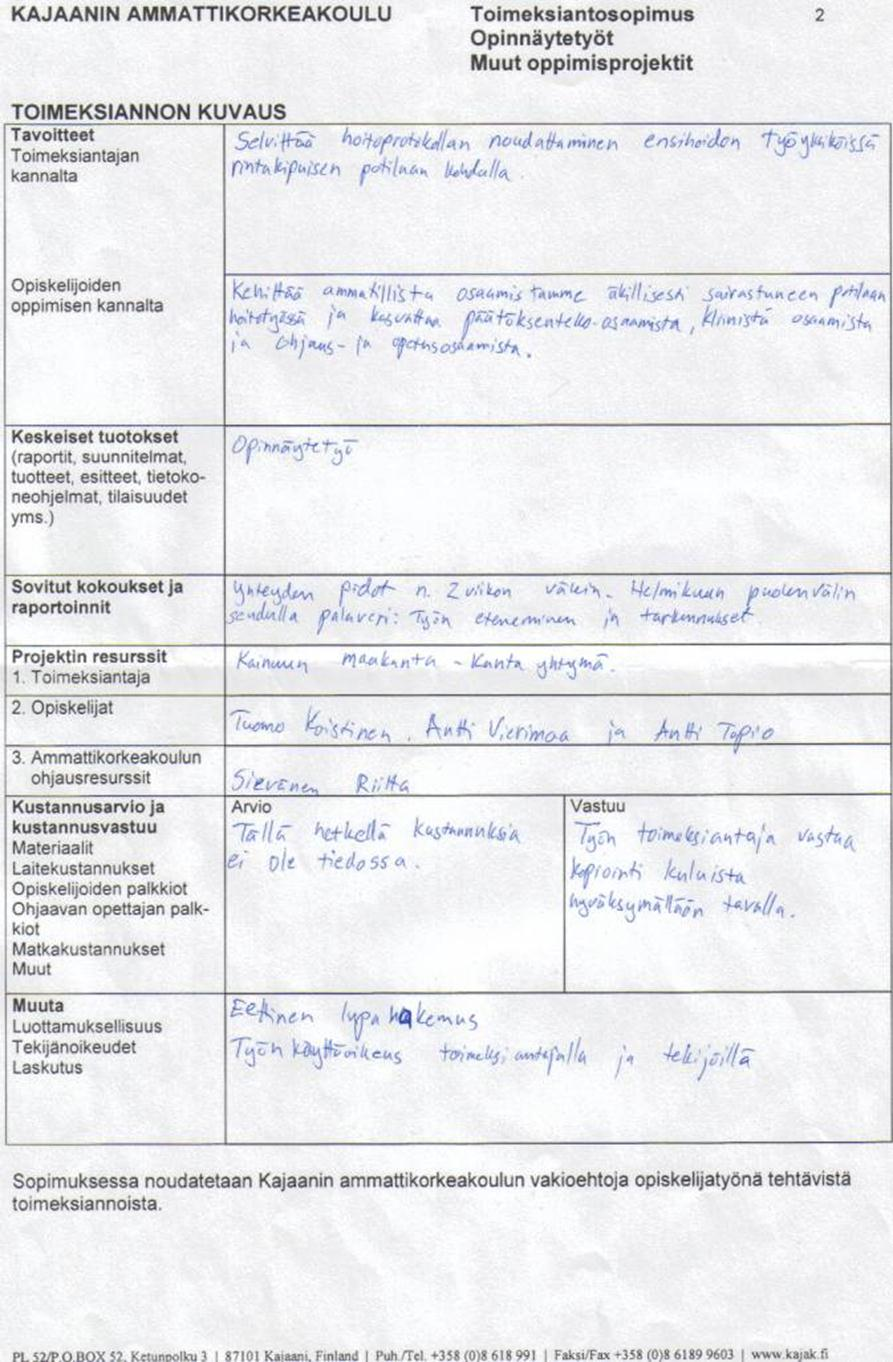 KAJAANIN AMMATTIKORKEAKOULU Toimeksiantosopimus 2
Opinnäytetyöt
Muut oppimisprojektit
TOIMEKSIANNON KUVAUS
Tavoitteet
Toimeksiantajan
kannalta
Selvittää hoitoprotokollan noudattaminen ensihoidon työyksiköissä
rintakipuisen potilaan kohdalla.
Opiskelijoiden
oppimisen kannalta
Kehittää ammatillista osaamistamme äkillisesti sairastuneen potilaan
hoitotyössä ja kasvattaa päätöksenteko-osaamista, kliinistä osaamista
ja ohjaus- ja opetusosaamista.
Keskeiset tuotokset
(raportit, suunnitelmat,
tuotteet, esitteet, tietoko-
neohjelmat, tilaisuudet
yms.)
Opinnäytetyö
Sovitut kokoukset ja
raportoinnit
Yhteyden pidot n. 2 viikon välein. Helmikuun puolenvälin
seudulla palaveri: Työn eteneminen ja tarkennukset.
Projektin resurssit
1. Toimeksiantaja
Kainuun maakunta - kuntayhtymä.
2. Opiskelijat
Tuomo Koistinen, Antti Vierimaa ja Antti Tapio
3. Ammattikorkeakoulun
ohjausresurssit
Sievänen Riitta
Kustannusarvio ja
kustannusvastuu
Materiaalit
Laitekustannukset
Opiskelijoiden palkkiot
Ohjaavan opettajan palk-
kiot
Matkakustannukset
Muut
Arvio
Tällä hetkellä kustannuksia
ei ole tiedossa.
Vastuu
Työn toimeksiantaja vastaa
kopiointi kuluista
hyväksymällään tavalla.
Muuta
Luottamuksellisuus
Tekijänoikeudet
Laskutus
Eettinen lupahakemus
Työn käyttöoikeus toimeksiantajalla ja tekijöillä
Sopimuksessa noudatetaan Kajaanin ammattikorkeakoulun vakioehtoja opiskelijatyönä tehtävistä
toimeksiannoista.
PL 52/P.O.BOX 52, Ketunpolku 3 | 87101 Kajaani, Finland | Puh./Tel. +358 (0)8 618 991 | Faksi/Fax +358 (0)8 6189 9603 | www.kajak.fi